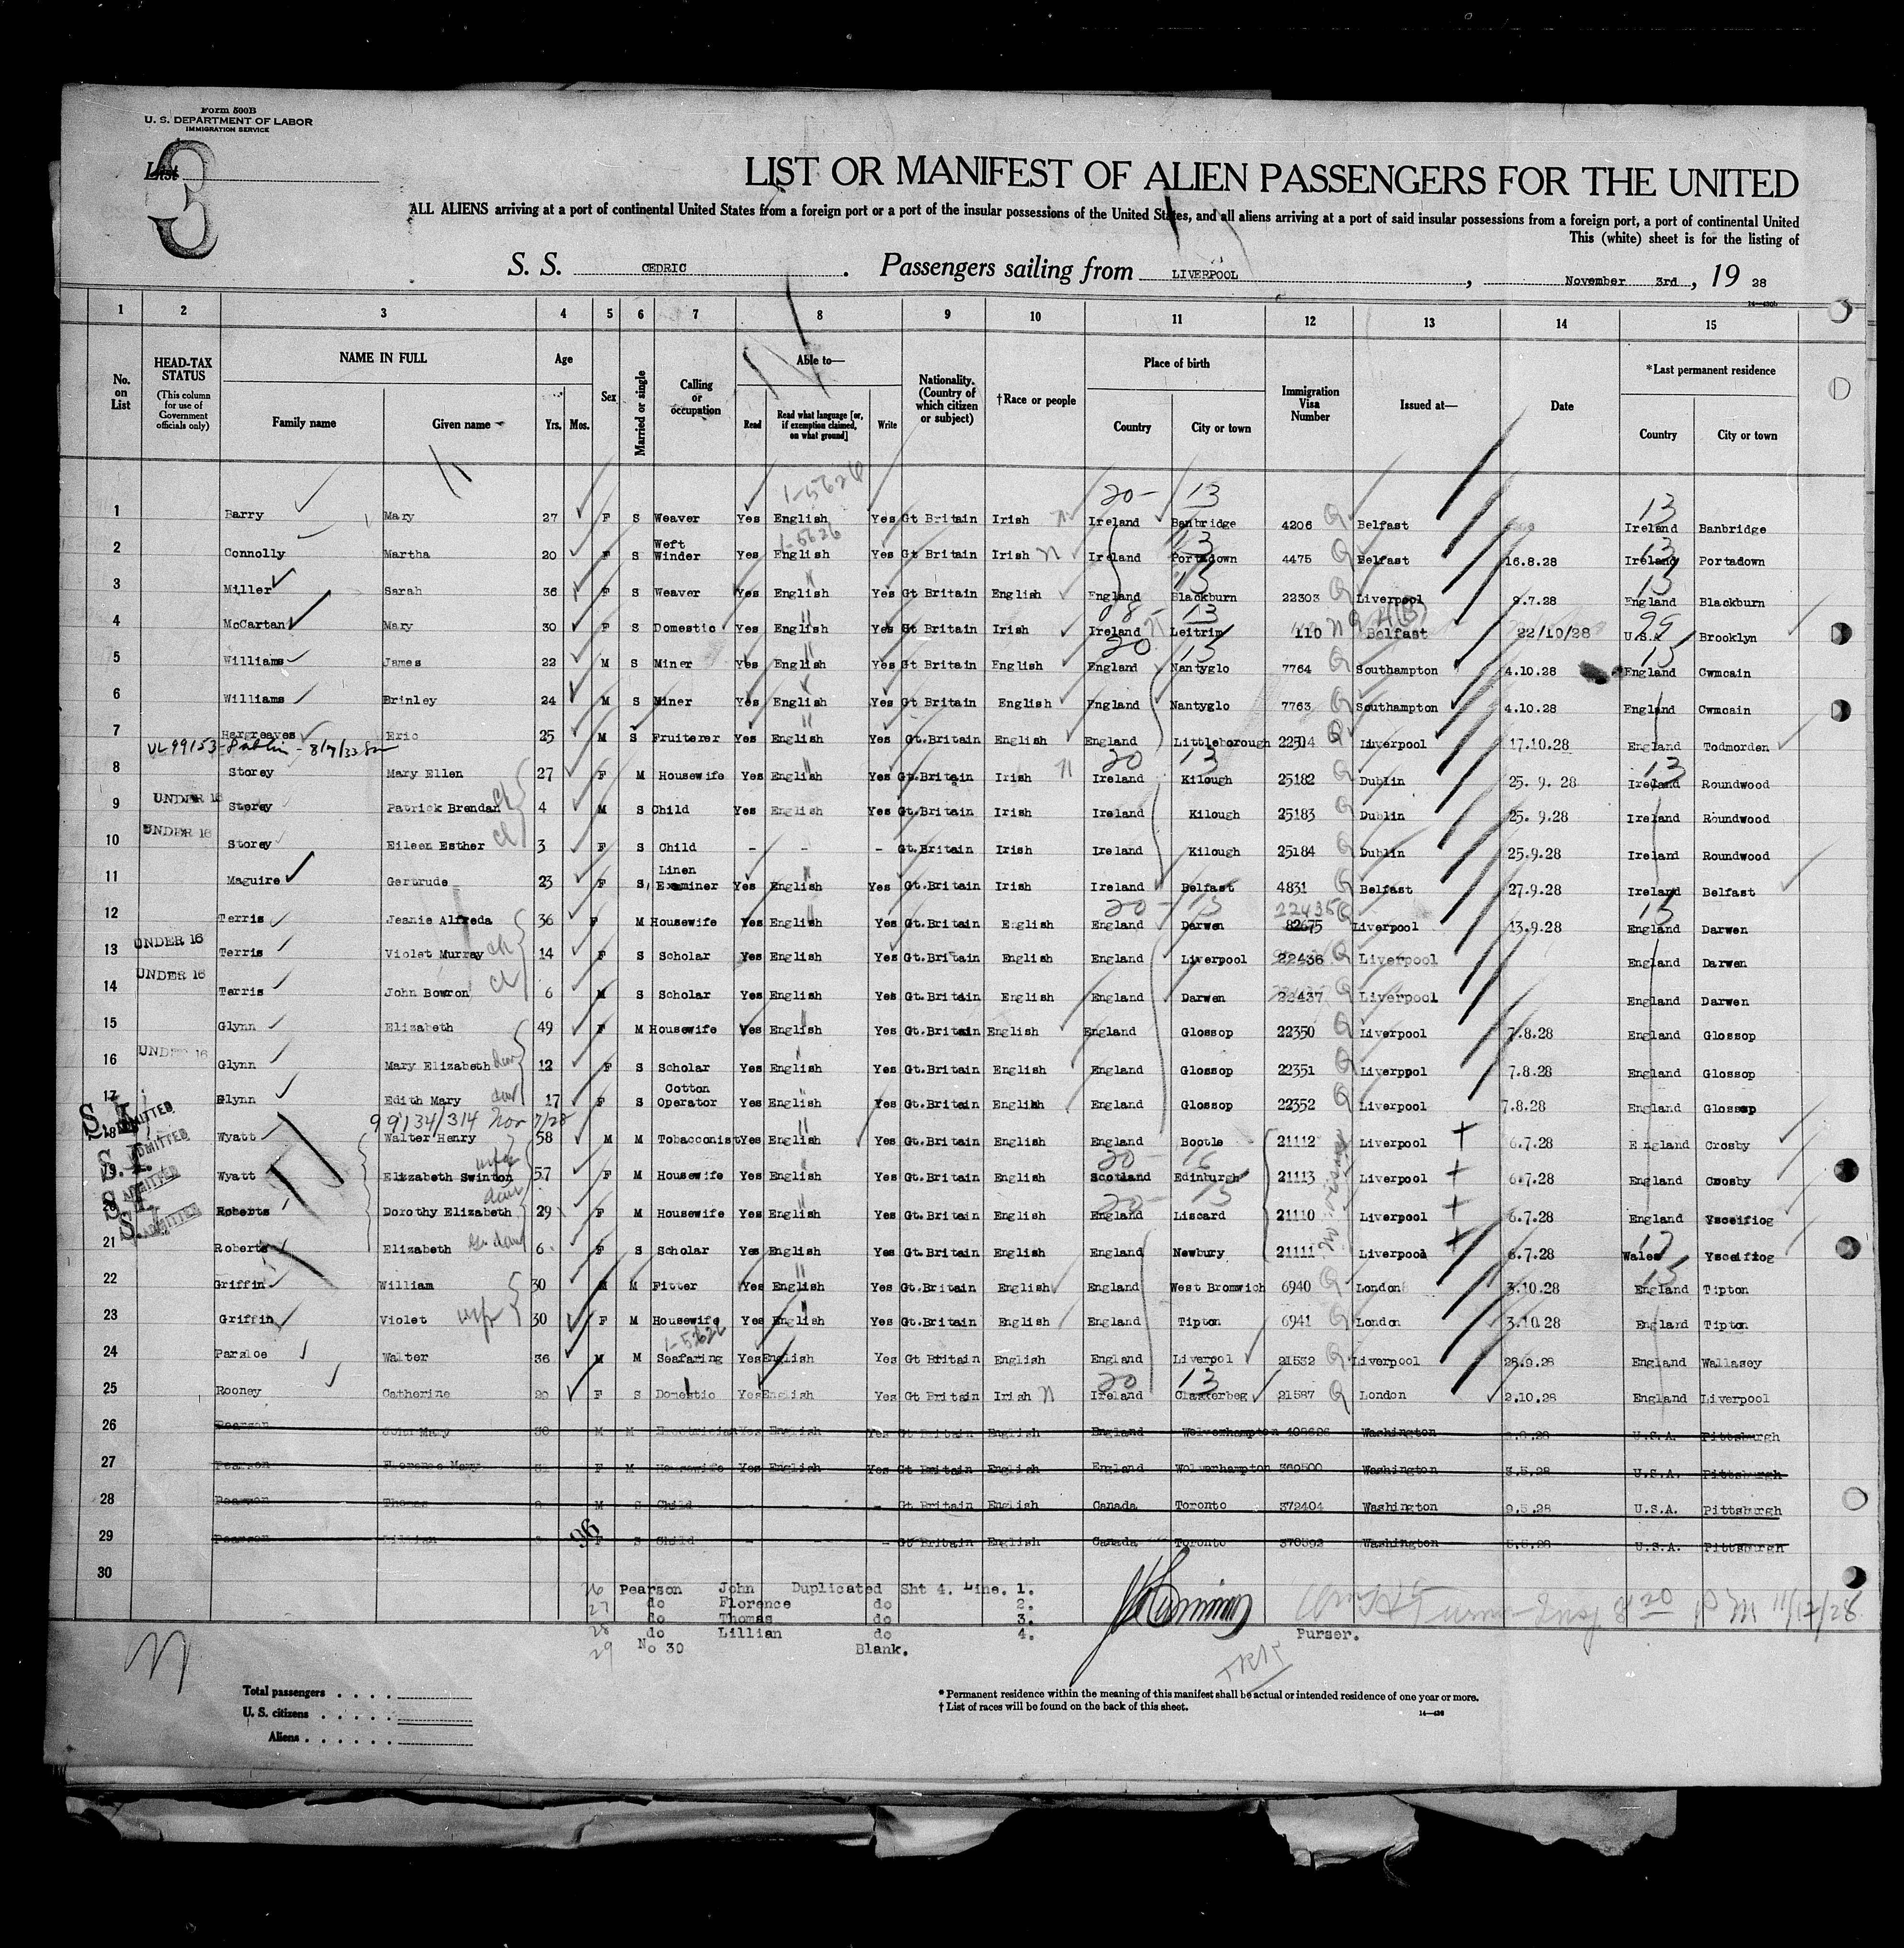 Form 500B
U. S. DEPARTMENT OF LABOR
IMMIGRATION SERVICE
List 3
LIST OR MANIFEST OF ALIEN PASSENGERS FOR THE UNITED
ALL ALIENS arriving at a port of continental United States from a foreign port or a port of the insular possessions of the United States, and all aliens arriving at a port of said insular possessions from a foreign port, a port of continental United
This (white) sheet is for the listing of
S. S. CEDRIC . Passengers sailing from LIVERPOOL , November 3rd , 19 28
1 2 3 4 5 6 7 8 9 10 11 12 13 14 15
No. on List HEAD-TAX STATUS (This column for use of Government officials only) NAME IN FULL Family name Given name Age Yrs. Mos. Sex Married or single Calling or occupation Able to— Read Read what language [or, if exemption claimed, on what ground] Write Nationality. (Country of which citizen or subject) †Race or people Place of birth Country City or town Immigration Visa Number Issued at— Date *Last permanent residence Country City or town
1-5626 20- 13 13
1 Barry Mary 27 F S Weaver Yes English Yes Gt Britain Irish Ireland Banbridge 4206 Q Belfast Ireland Banbridge
1-5626 13 13
2 Connolly Martha 20 F S Weft Winder Yes English Yes Gt Britain Irish Ireland Portadown 4475 Q Belfast 16.8.28 Ireland Portadown
3 Miller Sarah 36 F S Weaver Yes English Yes Gt Britain English England Blackburn 22303 Q Liverpool 9.7.28 England Blackburn
4 McCartan Mary 30 F S Domestic Yes English Yes Gt Britain Irish Ireland Leitrim 110 Belfast 22/10/28 U.S.A. Brooklyn
5 Williams James 22 M S Miner Yes English Yes Gt Britain English England Nantyglo 7764 Q Southampton 4.10.28 England Cwmcain
6 Williams Brinley 24 M S Miner Yes English Yes Gt Britain English England Nantyglo 7763 Q Southampton 4.10.28 England Cwmcain
7 Hargreaves Eric 25 M S Fruiterer Yes English Yes Gt.Britain English England Littleborough 22504 Q Liverpool 17.10.28 England Todmorden
8 Storey Mary Ellen 27 F M Housewife Yes English Yes Gt.Britain Irish Ireland Kilough 25182 Q Dublin 25. 9. 28 Ireland Roundwood
9 UNDER 16 Storey Patrick Brendan ch 4 M S Child Yes English Yes Gt.Britain Irish Ireland Kilough 25183 Q Dublin 25. 9.28 Ireland Roundwood
10 UNDER 16 Storey Eileen Esther ch 3 F S Child - - - Gt.Britain Irish Ireland Kilough 25184 Q Dublin 25.9.28 Ireland Roundwood
11 Maguire Gertrude 23 F S Linen Examiner Yes English Yes Gt.Britain Irish Ireland Belfast 4831 Q Belfast 27.9.28 Ireland Belfast
20- 13 22435 13
12 Terris Jeanie Alfreda 36 F M Housewife Yes English Yes Gt.Britain English England Darwen 82675 Q Liverpool 13.9.28 England Darwen
13 UNDER 16 Terris Violet Murray ch 14 F S Scholar Yes English Yes Gt.Britain English England Liverpool 22436 Q Liverpool England Darwen
14 UNDER 16 Terris John Bowron ch 6 M S Scholar Yes English Yes Gt.Britain English England Darwen 22437 Q Liverpool England Darwen
15 Glynn Elizabeth 49 F M Housewife Yes English Yes Gt.Britain English England Glossop 22350 Q Liverpool 7.8.28 England Glossop
16 UNDER 16 Glynn Mary Elizabeth dau 12 F S Scholar Yes English Yes Gt.Britain English England Glossop 22351 Q Liverppol 7.8.28 England Glossop
17 Glynn Edith Mary dau 17 F S Cotton Operator Yes English Yes Gt.Britain English England Glossop 22352 Q Liverpool 7.8.28 England Glossop
99134/314 Nov 7/28
18 S.I. ADMITTED Wyatt Walter Henry 58 M M Tobacconist Yes English Yes Gt.Britain English England Bootle 21112 Liverpool 6.7.28 England Crosby
19 S.I. ADMITTED Wyatt Elizabeth Swinton wife 57 F M Housewife Yes English Yes Gt.Britain English Scotland Edinburgh 21113 Liverpool 6.7.28 England Crosby
20 S.I. ADMITTED Roberts Dorothy Elizabeth dau 29 F M Housewife Yes English Yes Gt.Britain English England Liscard 21110 Liverpool 6.7.28 England Ysceifiog
21 S.I. ADMITTED Roberts Elizabeth Gr dau 6 F S Scholar Yes English Yes Gt.Britain English England Newbury 21111 Liverpool 6.7.28 Wales Ysceifiog
22 Griffin William 30 M M Fitter Yes English Yes Gt.Britain English England West Bromwich 6940 Q London 3.10.28 England Tipton
23 Griffin Violet wife 30 F M Housewife Yes English Yes Gt.Britain English England Tipton 6941 Q London 3.10.28 England Tipton
24 Parsloe Walter 36 M M Seafaring Yes English Yes Gt Britain English England Liverpol 21532 Q Liverpool 28.9.28 England Wallasey
25 Rooney Catherine 29 F S Domestic Yes English Yes Gt Britain Irish Ireland 21587 Q London 2.10.28 England Liverpool
26 Pearson 30 M M Electrician Yes English Yes Gt Britain English England Wolverhampton Washington U.S.A. Pittsburgh
27 Pearson Florence Mary F M Housewife Yes English Yes Gt Britain English England Wolverhampton 360500 Washington 3.5.28 U.S.A. Pittsburgh
28 Pearson Thomas M S Child - - - Gt Britain English Canada Toronto 372404 Washington 9.5.28 U.S.A. Pittsburgh
29 Pearson Lillian F S Child - - - Gt Britain English Canada Toronto Washington U.S.A. Pittsburgh
30
26 Pearson John Duplicated Sht 4. Line. 1.
27 do Florence do 2.
28 do Thomas do 3.
29 do Lillian do 4.
No 30 Blank.
Purser.
Total passengers
U. S. citizens
Aliens
* Permanent residence within the meaning of this manifest shall be actual or intended residence of one year or more.
† List of races will be found on the back of this sheet.
14—430